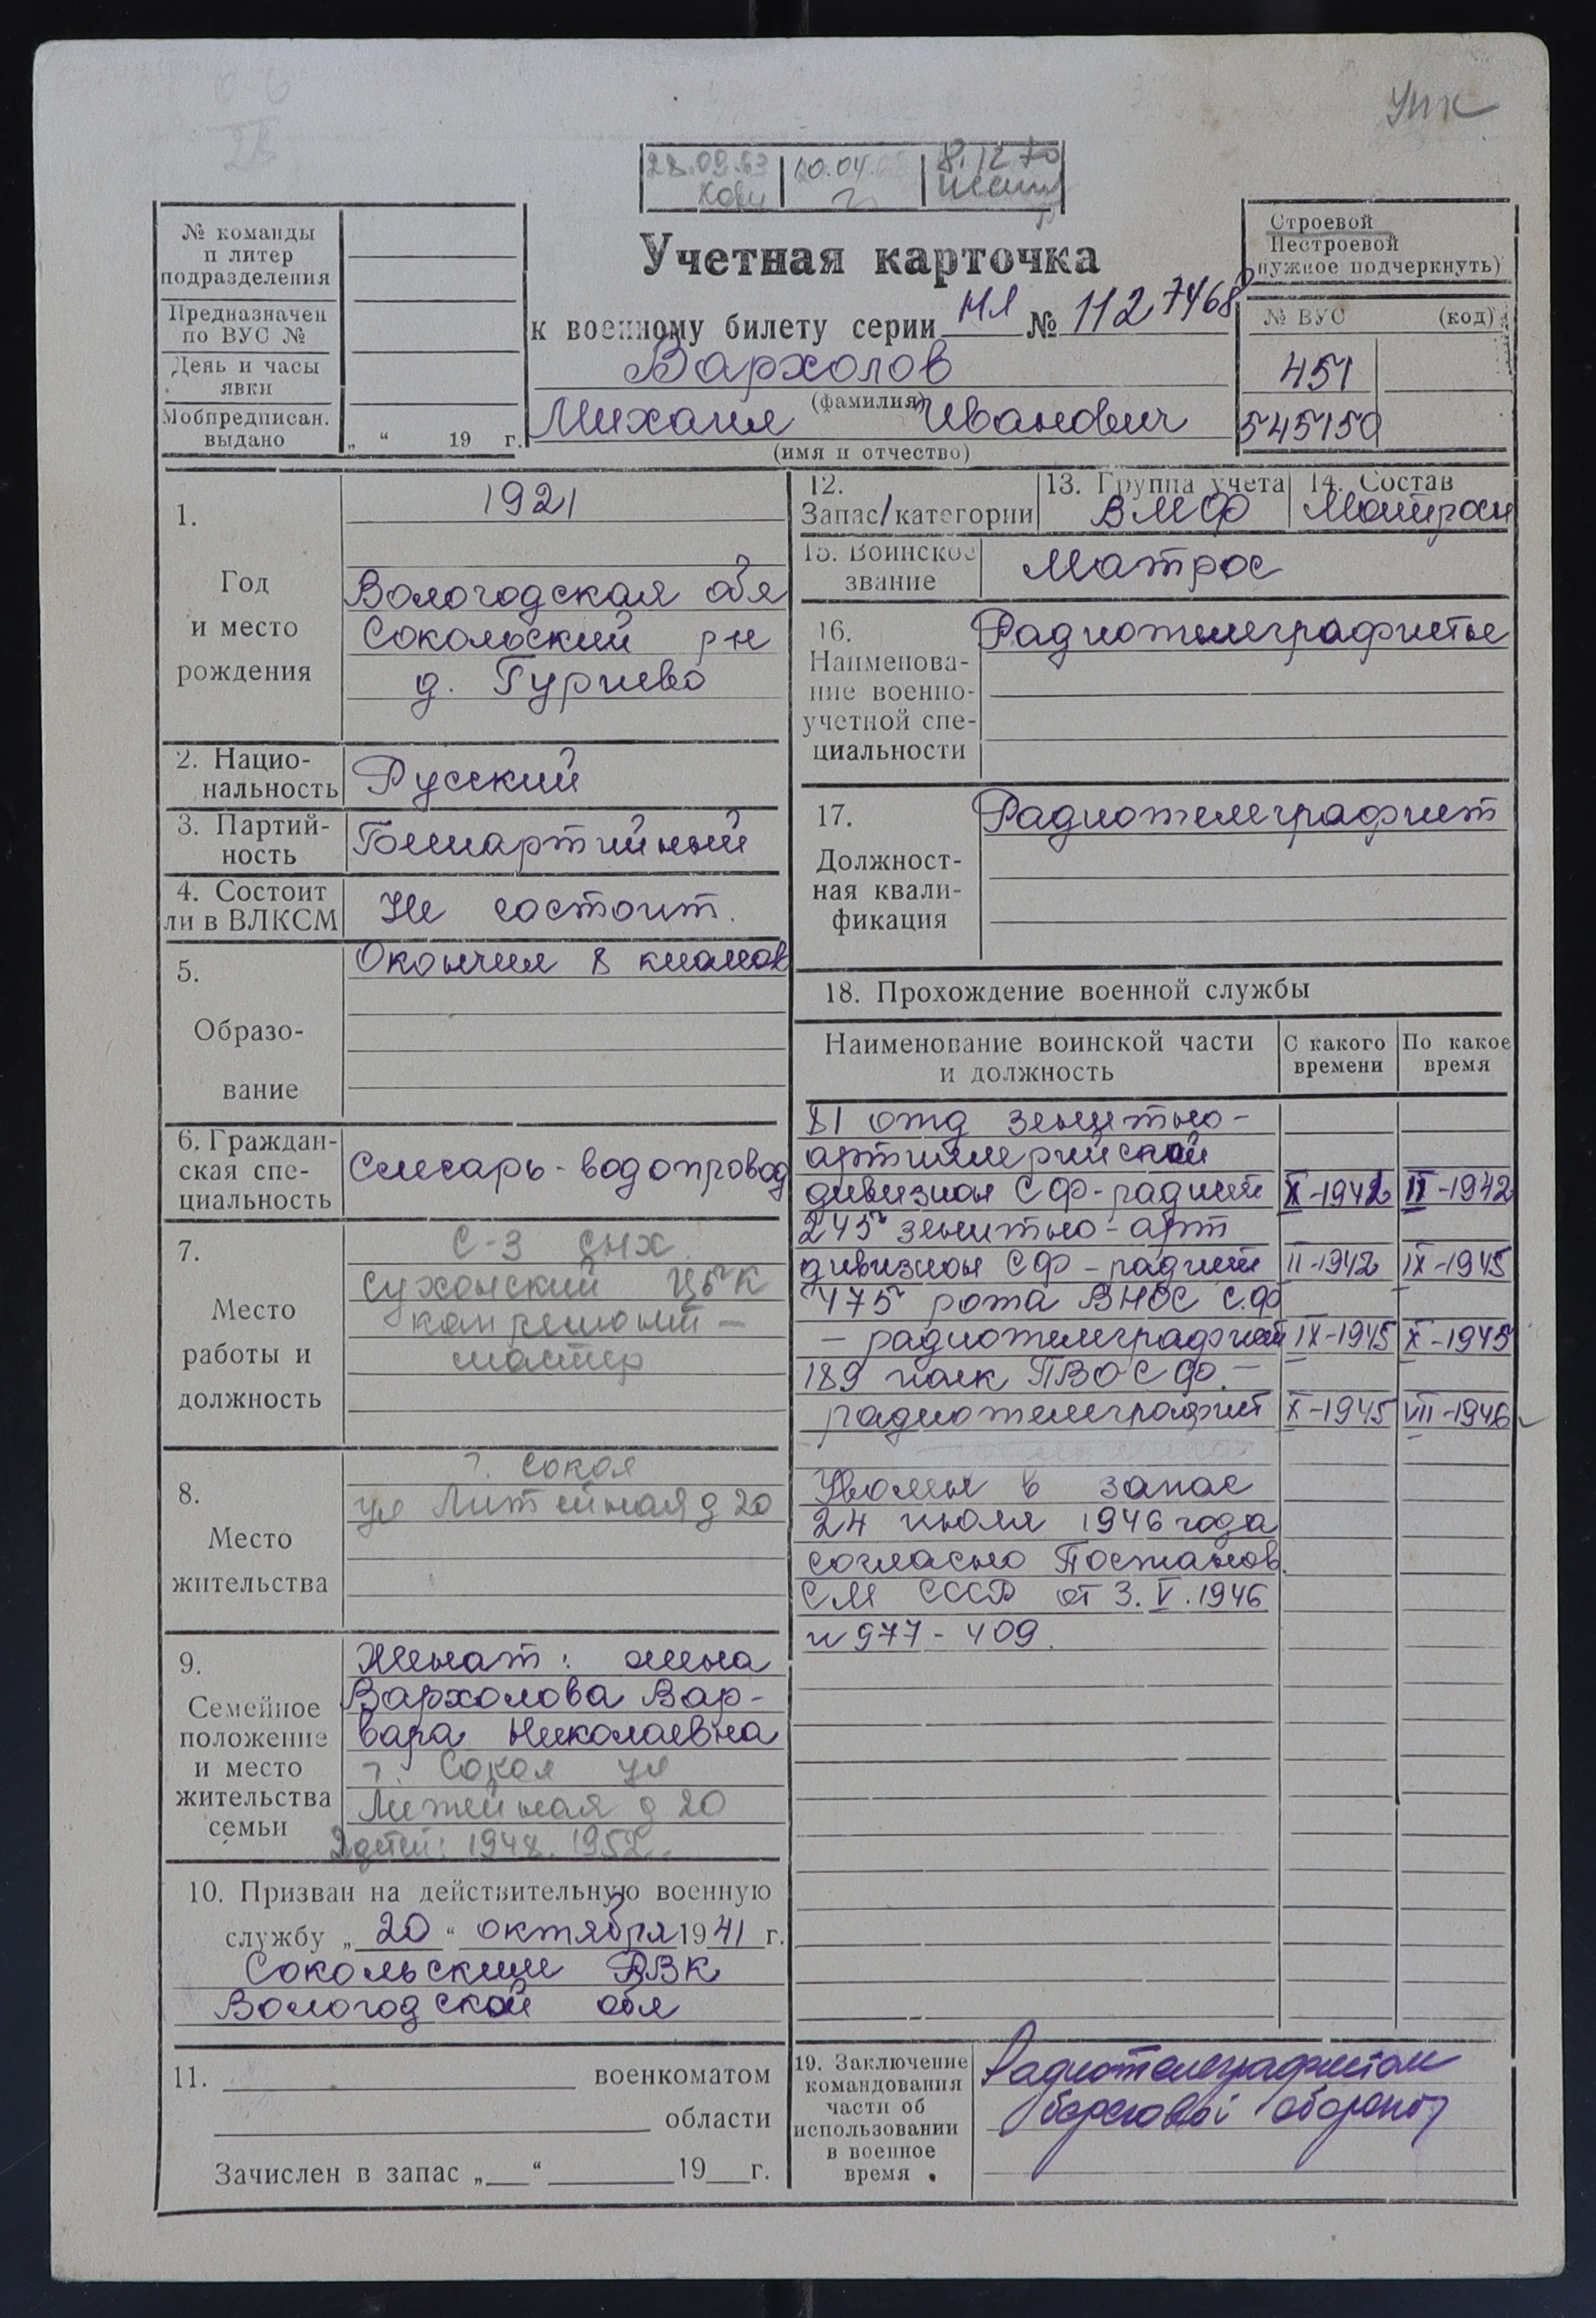 Упк
28.09.63
10.04.
8.12.70
№ команды
и литер
подразделения
Предназначен
по ВУС №
День и часы
явки
Мобпредписан.
выдано
„ “ 19 г.
Учетная карточка
к военному билету серии НЯ № 1127468
Вархолов
(фамилия)
Михаил Иванович
(имя и отчество)
Строевой
Нестроевой
нужное подчеркнуть)
№ ВУС (код)
451
545150
1.
Год
и место
рождения
1921
Вологодская обл
Сокольский р-н
д. Гурнево
2. Нацио-
нальность
Русский
3. Партий-
ность
Беспартийный
4. Состоит
ли в ВЛКСМ
Не состоит.
5.
Образо-
вание
Окончил 8 классов
6. Граждан-
ская спе-
циальность
Слесарь-водопровод
7.
Место
работы и
должность
Сухонский ЦБК
мастер
8.
Место
жительства
г. Сокол
ул Литейная д 20
9.
Семейное
положение
и место
жительства
семьи
Женат: жена
Вархолова Вар-
вара Николаевна
г. Сокол ул
Литейная д 20
2 детей: 1948. 1952.
10. Призван на действительную военную
службу „20“ октября 1941 г.
Сокольским РВК
Вологодской обл
11. военкоматом
области
Зачислен в запас „ “ 19 г.
12.
Запас/категории
13. Группа учета
ВМФ
14. Состав
Матросы
15. Воинское
звание
Матрос
16.
Наименова-
ние военно-
учетной спе-
циальности
Радиотелеграфисты
17.
Должност-
ная квали-
фикация
Радиотелеграфист
18. Прохождение военной службы
Наименование воинской части
и должность
С какого
времени
По какое
время
81 отд зенитно-
артиллерийский
дивизион СФ-радист X-1941 II-1942
245 зенитно-арт
дивизион СФ-радист II-1942 IX-1945
475 рота ВНОС С.Ф
- радиотелеграфист IX-1945 X-1945
189 полк ПВО СФ. -
радиотелеграфист X-1945 VII-1946
Уволен в запас
24 июля 1946 года
согласно Постанов.
СМ СССР от 3. V. 1946
н 977-409.
19. Заключение
командования
части об
использовании
в военное
время
Радиотелеграфистом
береговой обороны